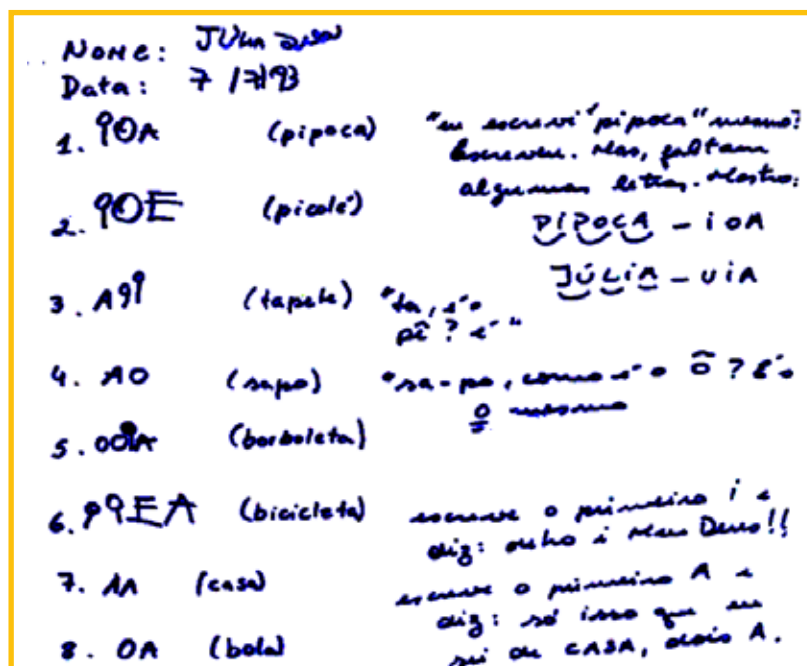 Nome: JÚlia
Data: 7/7/93
1. IOA (pipoca) "eu escrevi "pipoca" mesmo?
Escreveu. Mas, faltam
algumas letras. Mostro:
2. IOE (picolé)
PIPOCA - iOA
JÚLIA - UiA
3. AII (tapete) "ta, é o
pê? é"
4. AO (sapo) "sa-po, como é o ô? É o
O mesmo
5. OOIA (borboleta)
6. IIEA (bicicleta) escreve o primeiro i e
diz: outro i Meu Deus!!
7. AA (casa) escreve o primeiro A e
diz: só isso que eu
sei de CASA, dois A.
8. OA (bola)